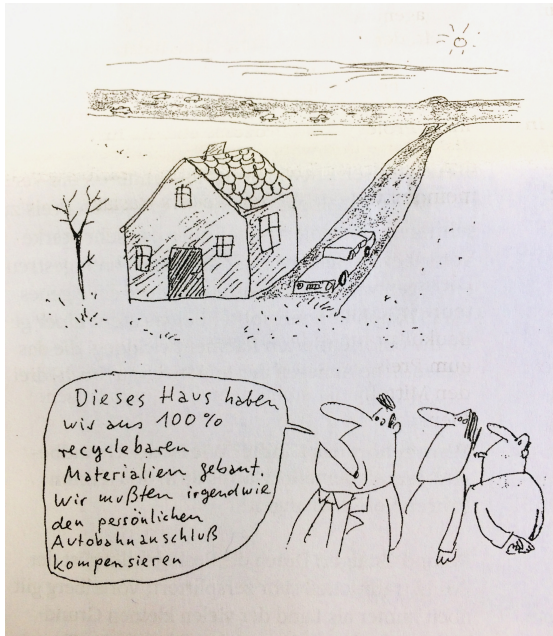 Dieses Haus haben
wir aus 100%
recyclebaren
Materialien gebaut.
Wir mußten irgendwie
den persönlichen
Autobahnanschluß
kompensieren